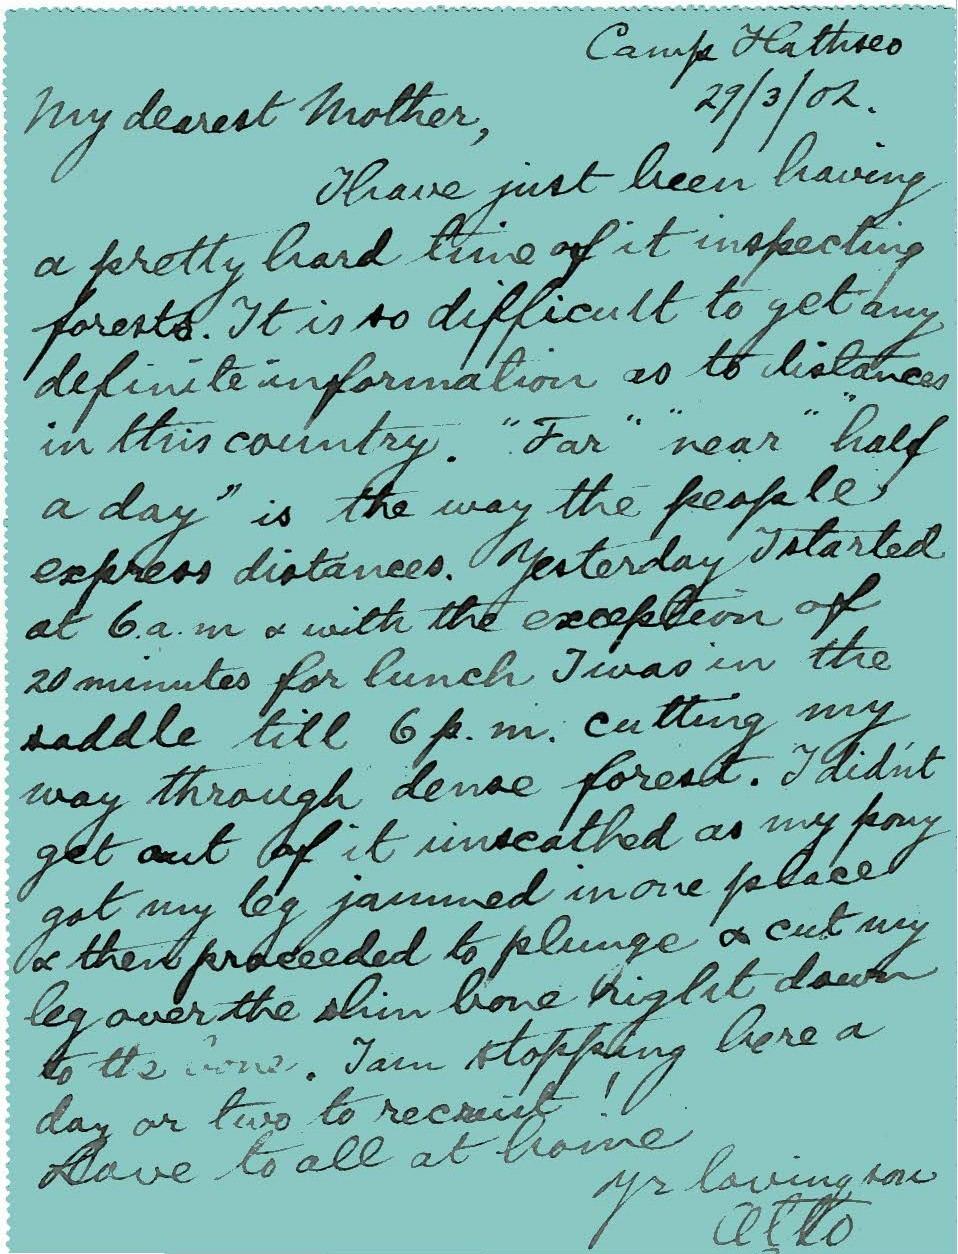 Camp Hathseo
29/3/02.
My dearest Mother,
I have just been having
a pretty hard time of it inspecting
forests. It is so difficult to get any
definite information as to distances
in this country. "Far" "near" "half
a day" is the way the people
express distances. Yesterday I started
at 6.a.m & with the exception of
20 minutes for lunch I was in the
saddle till 6 p.m. cutting my
way through dense forest. I didn't
get out of it unscathed as my pony
got my leg jammed in one place
& then proceeded to plunge & cut my
leg over the shin bone right down
to the bone. I am stopping here a
day or two to recruit!
Love to all at home
Yr loving son
Otto